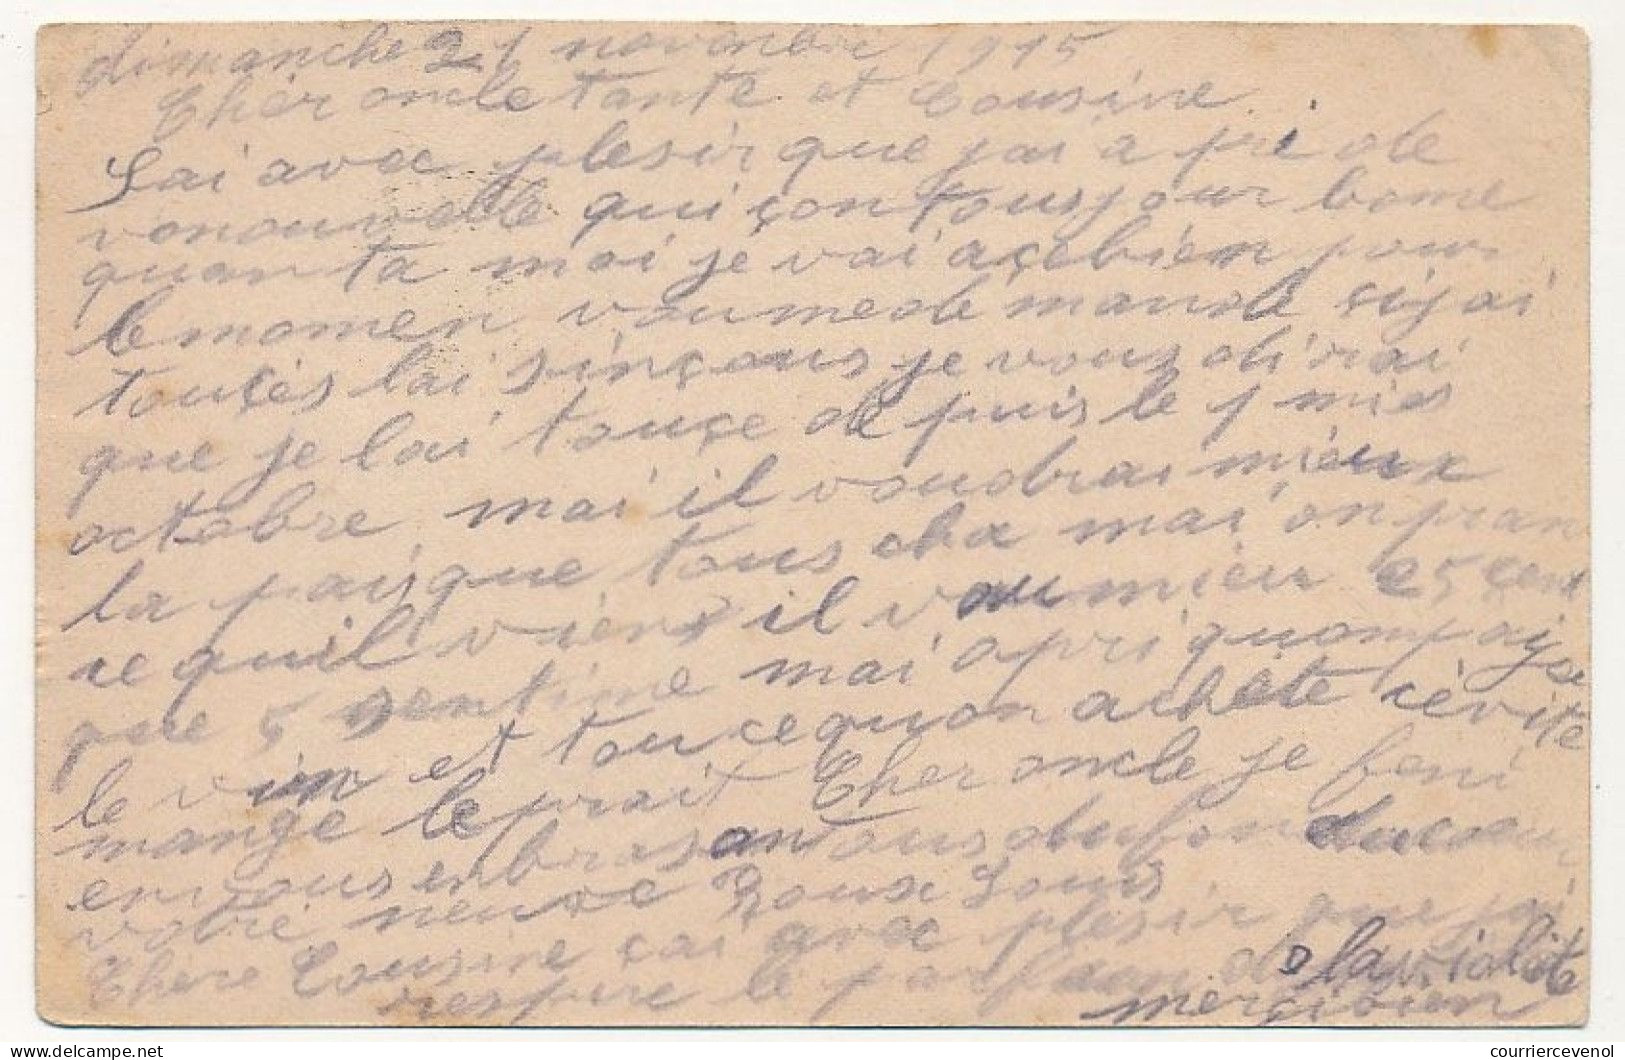 dimanche 21 novembre 1915
Chèr oncle tante et Cousine
Sai avec plesir que jai a pri de
vonouvelle qui çon tousjour bone
quanta moi je vai açebien pour
le momen voumede mande çijai
touçés lai sinçous je vous dirai
que je lai touçe de puis le 1 mies
octobre mai il voudrai mieux
la paisque tous cha mai on pran
ce quil viens il vau mieu 25 çent
que 5 sentime mai apri quompaije
le vin et tou cequon achete cévite
mange le prait Cher oncle je feni
en vous enbrasantous du fon ducœur
votre neuve Roux Louis
Chère Cousine çai avec plesir que jai
respire le parfuem de la violite
merçibien
courriercevenol
delcampe.net